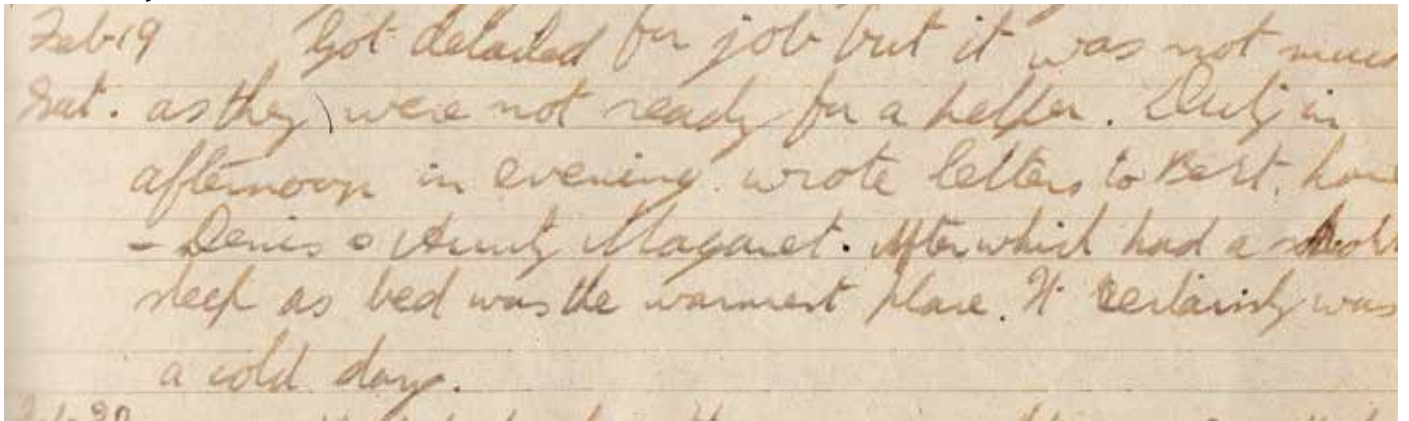 Feb 19 Got detailed for job but it was not much
Sat. as they were not ready for a helper. Duty in
afternoon in evening wrote letters to Bert, home
- Denis & Aunty Magaret. After which had a short
sleep as bed was the warmest place. It certainly was
a cold day.